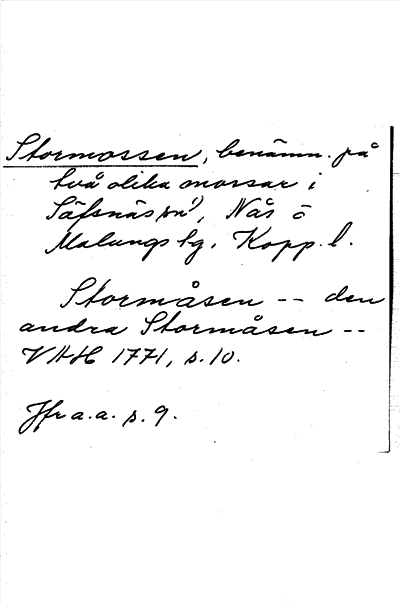 Stormossen, benämn. på
två olika mossar i
Säfsnäs sn?, Nås o
Malungs tg. Kopp. l.
Stormåsen -- den
andra Stormåsen --
VAH 1771, s. 10.
Jfr a. a. s. 9.